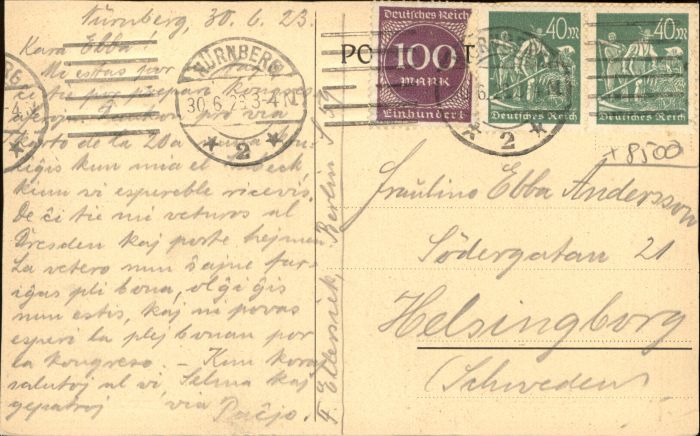 Nürnberg, 30. 6. 23.
Kara Ebba!
Mi estas por
ĉi tie por prepari kongreson.
Dankon pro via
karto de la 20a
kiun vi espereble ricevis.
De ĉi tie mi veturos al
Dresden kaj poste hejmen
La vetero nun ŝajne far-
iĝas pli bona, ol ĝi ĝis
nun estis, kaj ni povas
esperi la plej bonan por
la kongreso. – Kun koraj
salutoj al vi, Selma kaj
gepatroj via
Paĉjo.
F. Ellersiek, Berlin S 59
NÜRNBERG
30.6.23.3-4N.
2
POST
Deutsches Reich
100
MARK
Einhundert
40M
Deutsches Reich
40M
Deutsches Reich
2
+8500
Fräulino Ebba Andersson
Södergatan 21
Helsingborg
(Schweden)